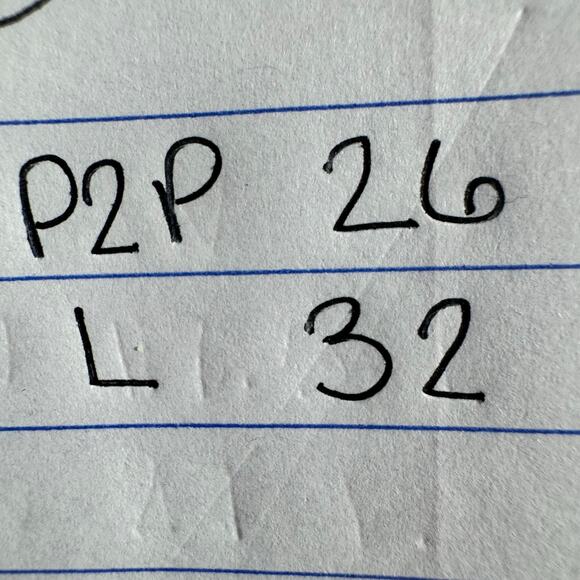 P2P 26
L 32